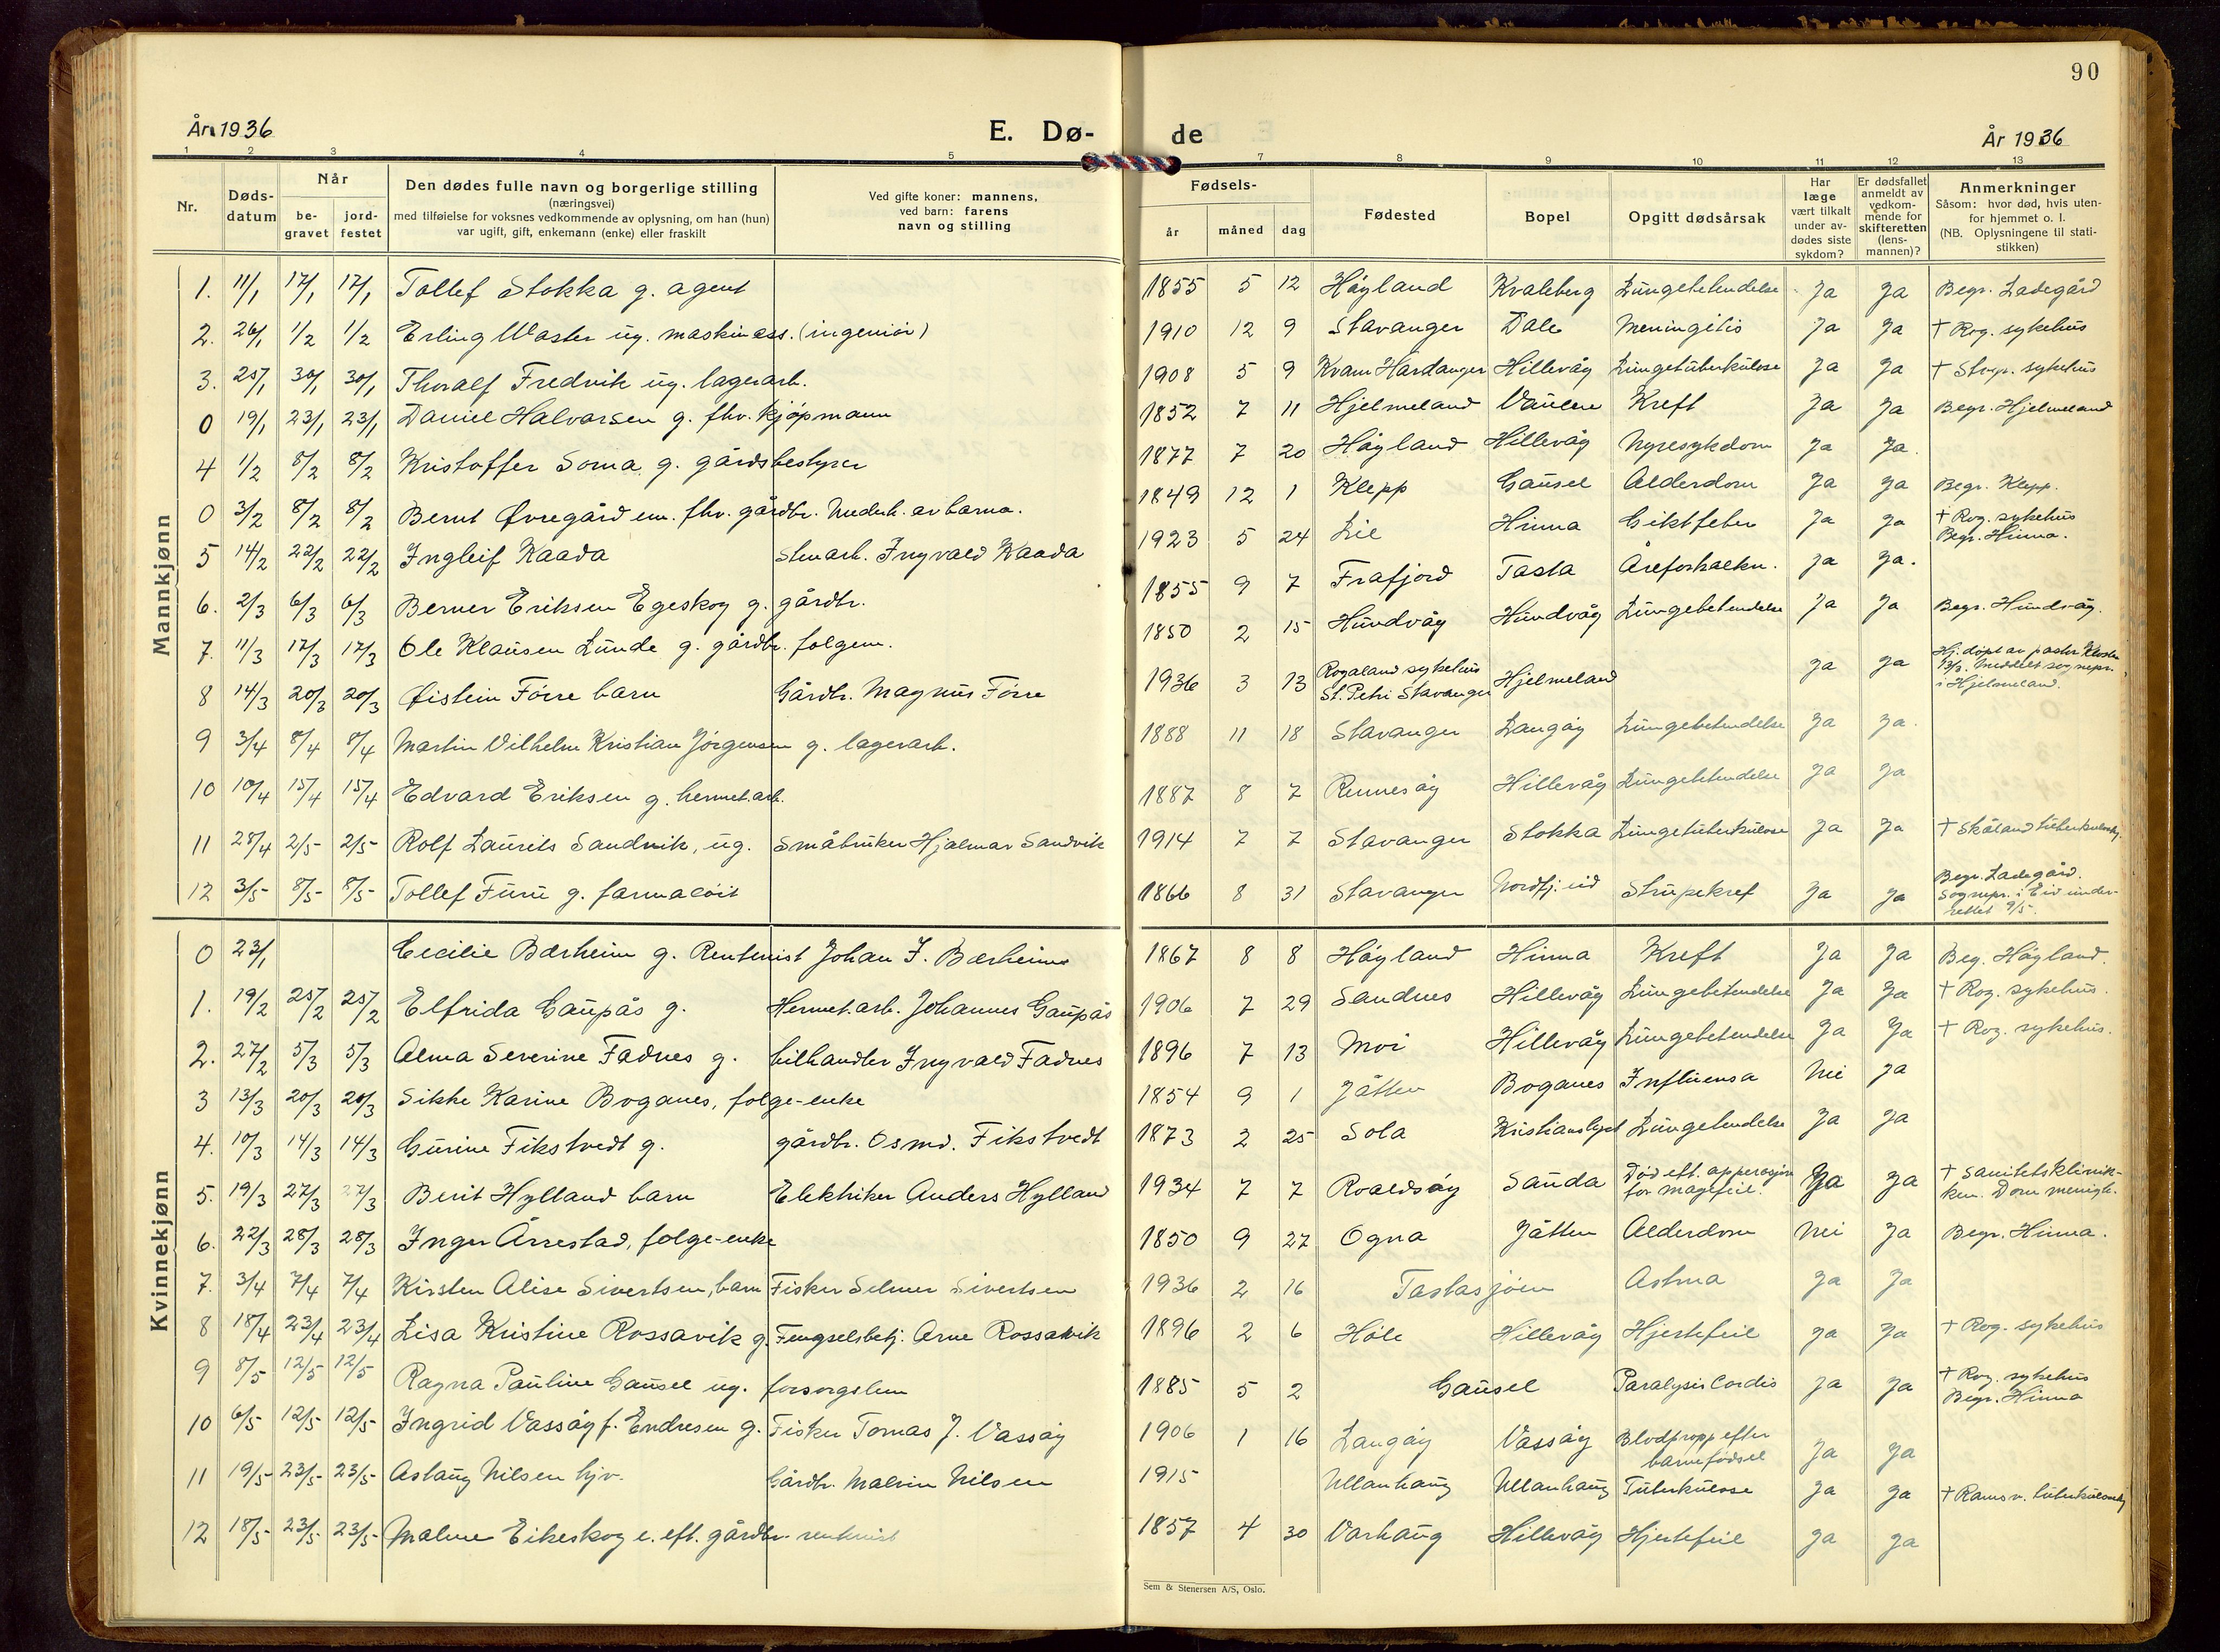 90
År 1936
E. Dø-
de
År 1936
1 2 3 4 5 7 8 9 10 11 12 13
Nr.
Døds-
datum
Når
be-
gravet
jord-
festet
Den dødes fulle navn og borgerlige stilling
(næringsvei)
med tilføielse for voksnes vedkommende av oplysning, om han (hun)
var ugift, gift, enkemann (enke) eller fraskilt
Ved gifte koner: mannens,
ved barn: farens
navn og stilling
Fødsels-
år måned dag
Fødested
Bopel
Opgitt dødsårsak
Har
læge
vært tilkalt
under av-
dødes siste
sykdom?
Er dødsfallet
anmeldt av
vedkom-
mende for
skifteretten
(lens-
mannen)?
Anmerkninger
Såsom: hvor død, hvis uten-
for hjemmet o. l.
(NB. Oplysningene til stati-
stikken)
Mannkjønn
1. 11/1 17/1 17/1 Tollef Stokka g. agent 1855 5 12 Høyland Kvaleberg Lungebetendelse Ja Ja Begr. Ladegård
2. 26/1 1/2 1/2 Erling Waster ug. maskinass. (ingeniør) 1910 12 9 Stavanger Dale Meningitis Ja Ja † Rog. sykehus
3. 25/1 30/1 30/1 Thoralf Fredvik ug. lagerarb. 1908 5 9 Kvam Hardanger Hillevåg Lungetuberkulose Ja Ja † Stvgr. sykehus
0 19/1 23/1 23/1 Daniel Halvorsen g. fhv. kjøpmann 1852 7 11 Hjelmeland Vaulen Kreft Ja Ja Begr. Hjelmeland
4 1/2 8/2 8/2 Kristoffer Soma g. gårdsbestyrer 1877 7 20 Høyland Hillevåg Nyresykdom Ja Ja.
0 3/2 8/2 8/2 Bernt Øvregård em. fhv. gårdbr. Underh. av barna. 1849 12 1 Klepp Gausel Alderdom Ja Ja Begr. Klepp.
5 14/2 22/2 22/2 Ingleif Kaada Stenarb. Ingvald Kaada 1923 5 24 Lie Hinna Giktfeber Ja Ja † Rog. sykehus
Begr. Hinna.
6. 2/3 6/3 6/3 Berner Eriksen Egeskog g. gårdbr. 1855 9 7 Frafjord Tasta Åreforkalkn. Ja Ja.
7. 11/3 17/3 17/3 Ole Klausen Lunde g. gårdbr. folgem. 1850 2 15 Hundvåg Hundvåg Lungebetendelse Ja Ja Begr. Hundvåg.
8 14/3 20/3 20/3 Øistein Førre barn Gårdbr. Magnus Førre 1936 3 13 Rogaland sykehus
St. Petri Stavanger Hjelmeland Ja Ja Hj. døpt av pastor
13/3. Meddelt sognepr.
i Hjelmeland.
9 3/4 8/4 8/4 Martin Vilhelm Kristian Jørgensen g. lagerarb. 1888 11 18 Stavanger Langøy Lungebetendelse Ja Ja.
10 10/4 15/4 15/4 Edvard Eriksen g. hermet.arb. 1887 8 7 Rennesøy Hillevåg Lungebetendelse Ja Ja
11 28/4 2/5 2/5 Rolf Laurits Sandvik, ug. Småbruker Hjalmar Sandvik 1914 7 7 Stavanger Stokka Lungetuberkulose Ja Ja † Skåland
12 3/5 8/5 8/5 Tollef Furu g. farmacøit 1866 8 31 Stavanger Nordfj. eid Strupekref Ja Ja Begr. Ladegård.
Sognepr. i Eid under-
rettet 9/5.
Kvinnekjønn
0 23/1 Cecilie Bærheim g. Rentenist Johan J. Bærheim 1867 8 8 Høyland Hinna Kreft Ja Ja Beg. Høyland.
1. 19/2 25/2 25/2 Elfrida Gaupås g. Hermet.arb. Johannes Gaupås 1906 7 29 Sandnes Hillevåg Lungebetendelse Ja Ja † Rog. sykehus.
2. 27/2 5/3 5/3 Alma Severine Fadnes g. bilhandler Ingvald Fadnes 1896 7 13 Moi Hillevåg Lungebetendelse Ja Ja † Rog. sykehus.
3 13/3 20/3 20/3 Sikke Karine Boganes, folge-enke 1854 9 1 Jåtten Boganes Influensa Nei Ja
4. 10/3 14/3 14/3 Gurine Fikstvedt g. gårdbr. Osmd. Fikstvedt 1873 2 25 Sola Kristianslyst Lungebetendelse Ja Ja
5. 19/3 27/3 27/3 Berit Hylland barn Elektriker Anders Hylland 1934 7 7 Roaldsøy Sauda Død eft. opperasjon
for magefeil. Ja Ja † Sanitetsklinik-
ken. Dom menigh.
6. 22/3 28/3 28/3 Inger Årrestad, folge-enke 1850 9 27 Ogna Jåtten Alderdom Nei Ja Begr. Hinna.
7. 3/4 7/4 7/4 Kirsten Alise Sivertsen, barn Fisker Selmer Sivertsen 1936 2 16 Tastasjøen Astma Ja Ja
8 18/4 23/4 23/4 Lisa Kristine Rossavik g. Fengselsbetj. Arne Rossavik 1896 2 6 Høle Hillevåg Hjertefeil Ja Ja † Rog. sykehus
9 8/5 12/5 12/5 Ragna Pauline Gausel ug. forsorgslem 1885 5 2 Gausel Paralysis Cordis Ja Ja † Rog. sykehus
Begr. Hinna
10 6/5 12/5 12/5 Ingrid Vassøy f. Endresen g. Fisker Tomas J. Vassøy 1906 1 16 Langøy Vassøy Blodpropp efter
barnefødsel Ja Ja
11 19/5 23/5 23/5 Aslaug Nilsen hjv. Gårdbr. Malvin Nilsen 1915 Ullanhaug Ullanhaug Tuberkulose Ja Ja † Ramsv.
12 18/5 23/5 23/5 Malene Eikeskog e. eft. gårdbr. rentenist 1857 4 30 Varhaug Hillevåg Hjertefeil Ja Ja
Sem & Stenersen A/S, Oslo.